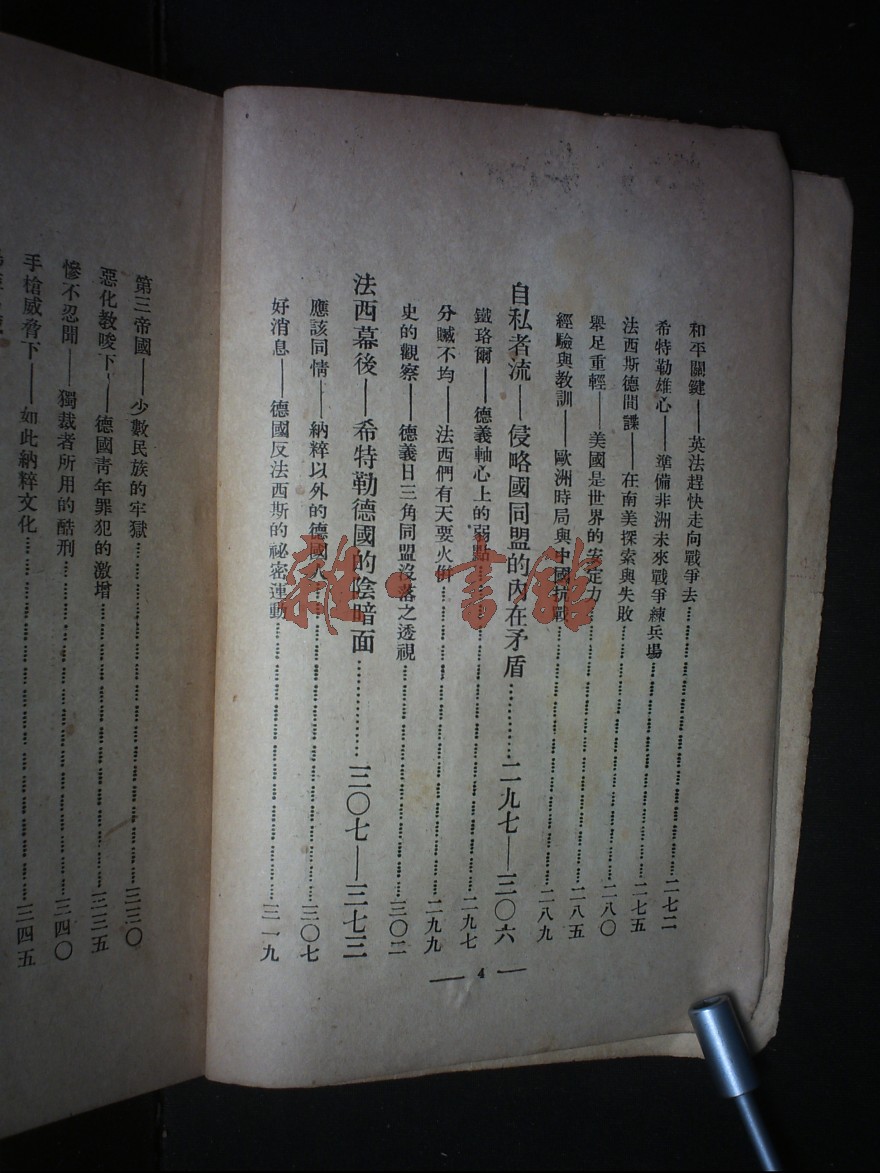 和平關鍵——英法趕快走向戰爭去……二七二
希特勒雄心——準備非洲未來戰爭練兵場……二七五
法西斯德間諜——在南美探索與失敗……二八〇
舉足重輕——美國是世界的安定力……二八五
經驗與教訓——歐洲時局與中國抗戰……二八九
自私者流——侵略國同盟的內在矛盾……二九七—三〇六
鐵珞爾——德義軸心上的弱點……二九七
分贓不均——法西們有天要火併……二九九
史的觀察——德義日三角同盟沒落之透視……三〇二
法西幕後——希特勒德國的陰暗面……三〇七—三七三
應該同情——納粹以外的德國人……三〇七
好消息——德國反法西斯的祕密運動……三一九
— 4 —
第三帝國——少數民族的牢獄……三三〇
惡化教唆下——德國青年罪犯的激增……三三五
慘不忍聞——獨裁者所用的酷刑……三四〇
手槍威脅下——如此納粹文化……三四五
雜·書館